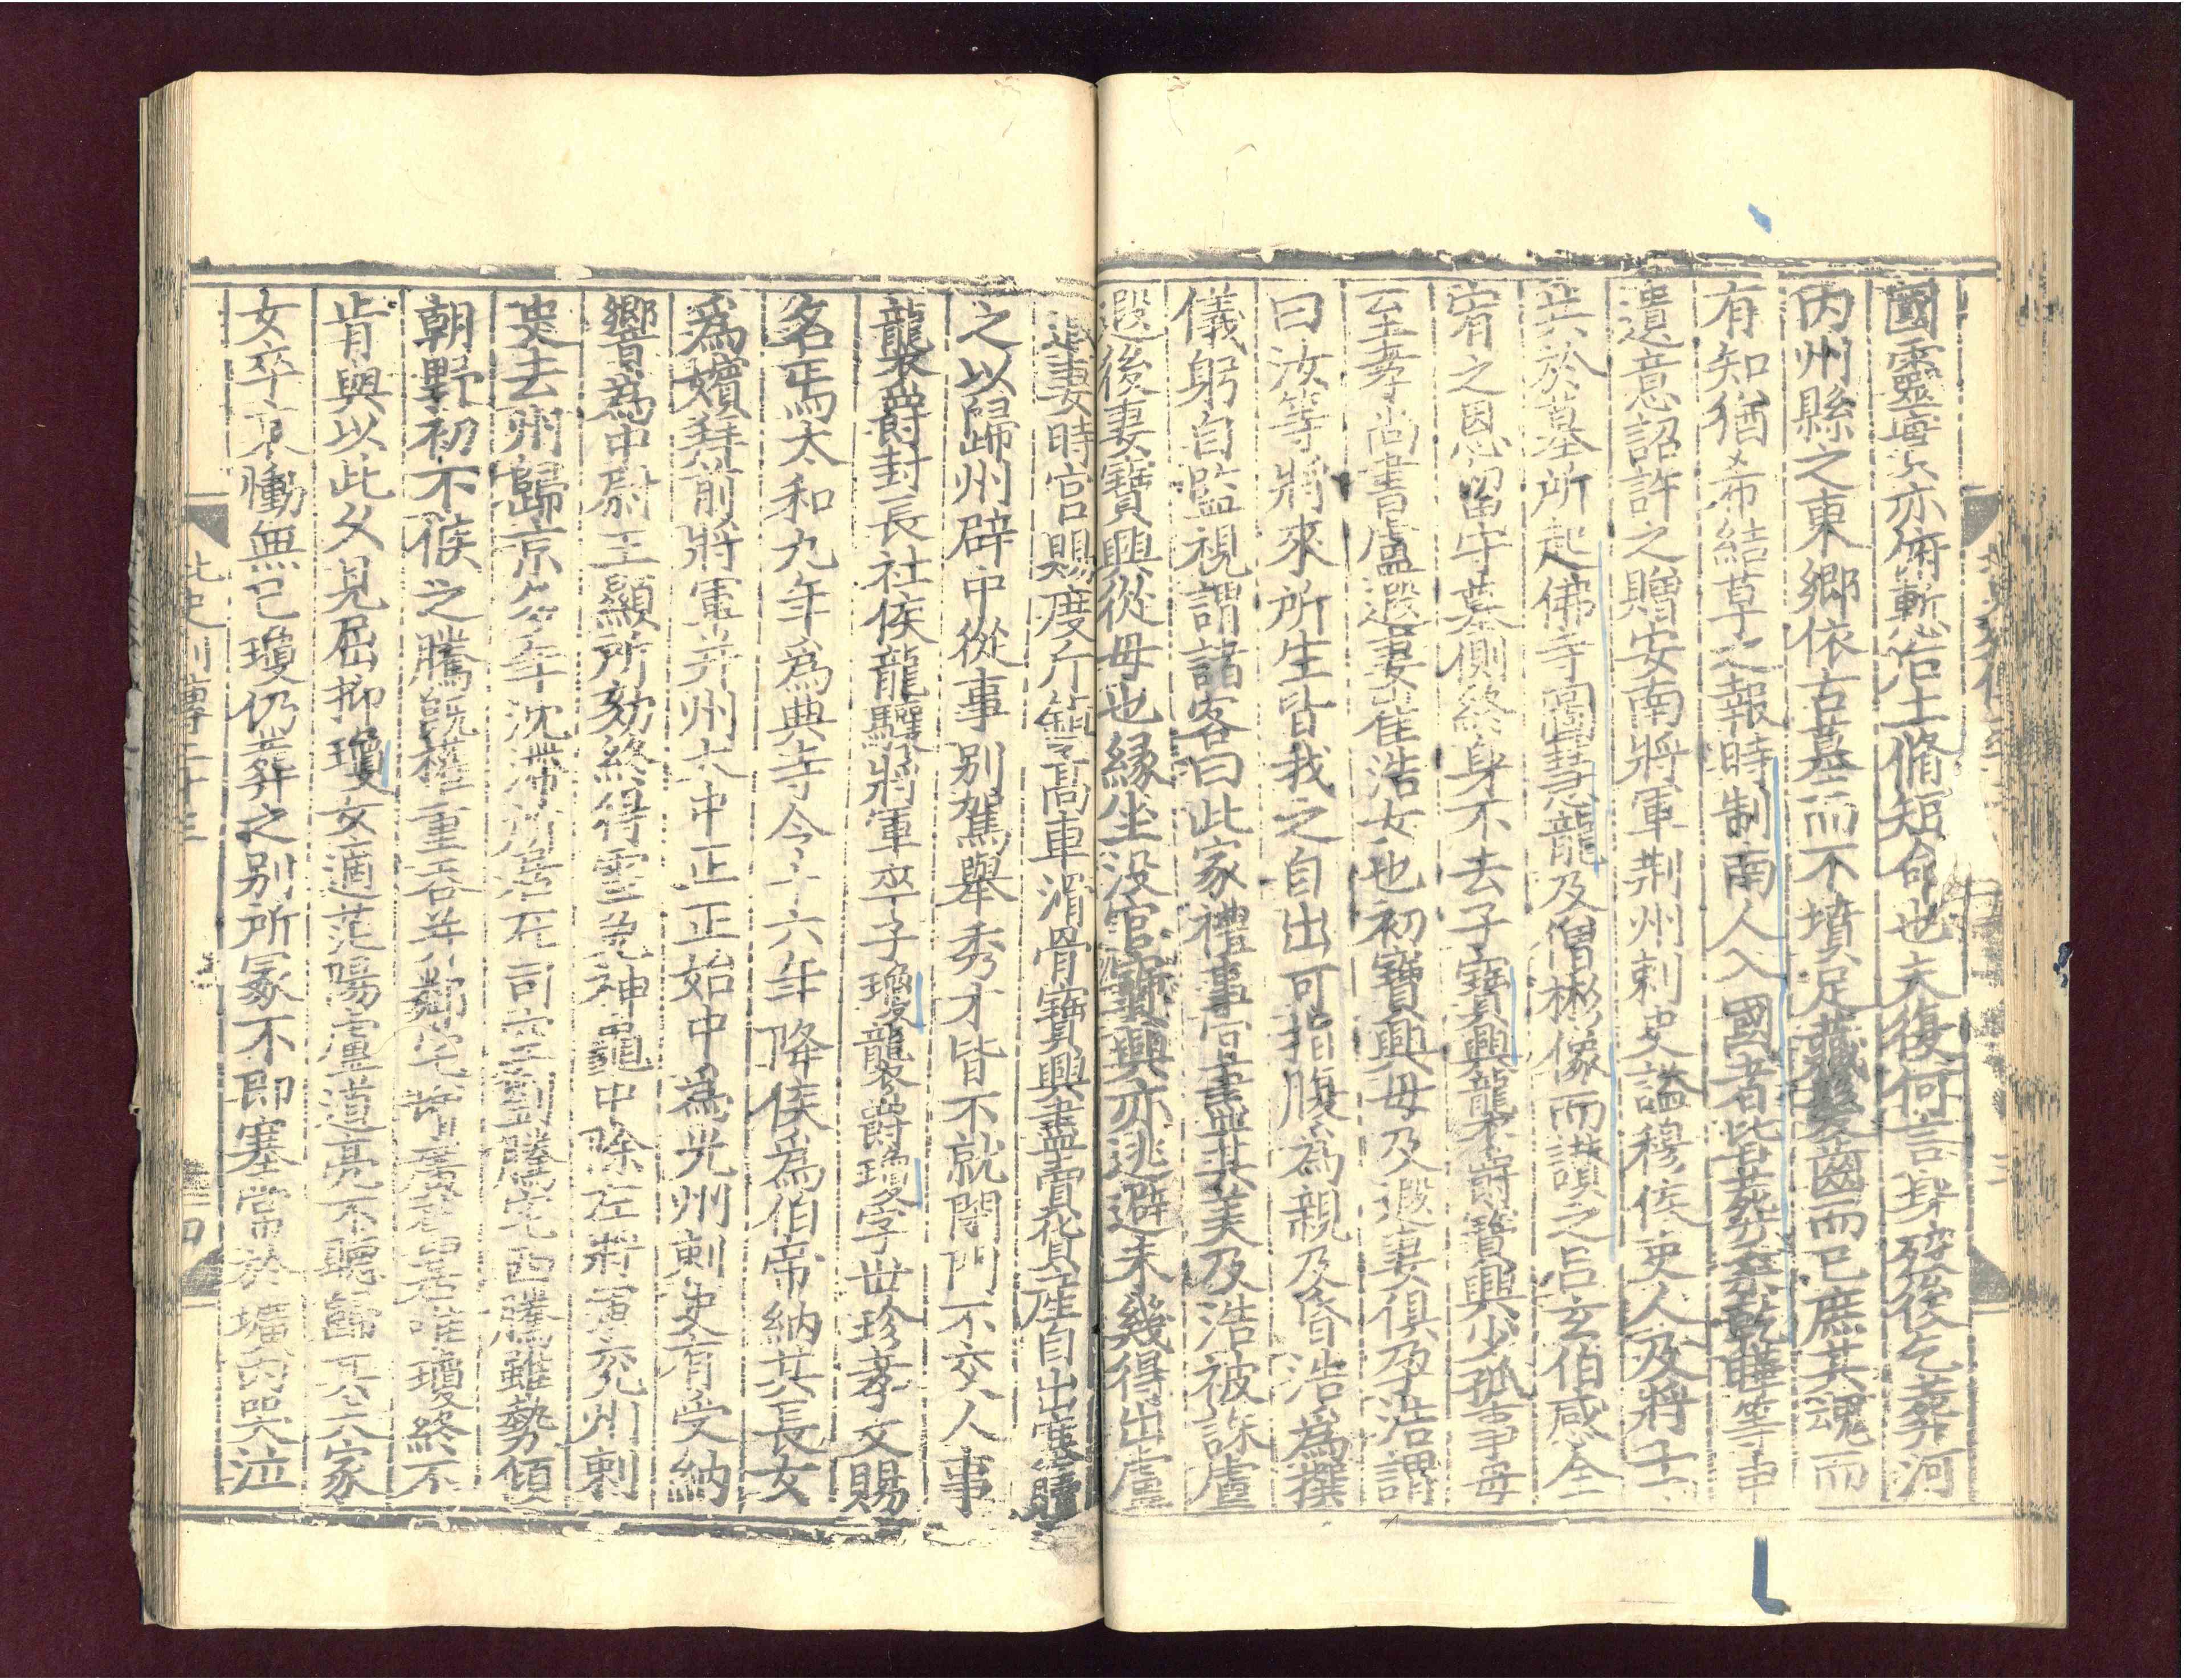 國靈墜亦俯慙后土脩短命也夫復何言身歿後乞葬河
內州縣之東鄉依古墓而不墳足藏髮齒而已庶其魂而
有知猶希結草之報時制南人入國者皆葬桑乾曄等申
遺意詔許之贈安南將軍荆州刺史謚穆侯吏人及將士
共於墓所起佛寺圖慧龍及僧彬像而讚之呂玄伯感全
宥之恩留守墓側終身不去子寶興龍爵寶興少孤事母
至孝尚書盧遐妻崔浩女也初寶興母及遐妻俱孕浩謂
曰汝等將來所生皆我之自出可指腹為親及昏浩為撰
儀躬自監視謂諸客曰此家禮事宜盡其美及浩被誅盧
遐後妻寶興從母也緣坐没官寶興亦逃避未幾得出盧
遐妻時官賜度斤鎮高車滑骨寶興盡賣貨產自出塞贖
之以歸州辟中從事別駕舉秀才皆不就閉門不交人事
襲爵封長社侯龍驤將軍卒子瓊襲爵瓊字世珍孝文賜
名焉太和九年為典寺令十六年降侯為伯帝納其長女
為嬪拜前將軍并州大中正正始中為光州刺史有受納
響為中尉王顯所劾終得雪免神龜中除左將軍兖州刺
史去州歸京多年沈滯所居在司空劉騰宅西騰雖勢傾
朝野初不候之騰既權重吞并鄰宅增廣舊居唯瓊終不
肯與以此久見屈抑瓊女適范陽盧道亮不聽歸其夫家
女卒哀慟無已瓊仍葬之別所冢不即塞常於壙內哭泣
北史列傳二十三
四